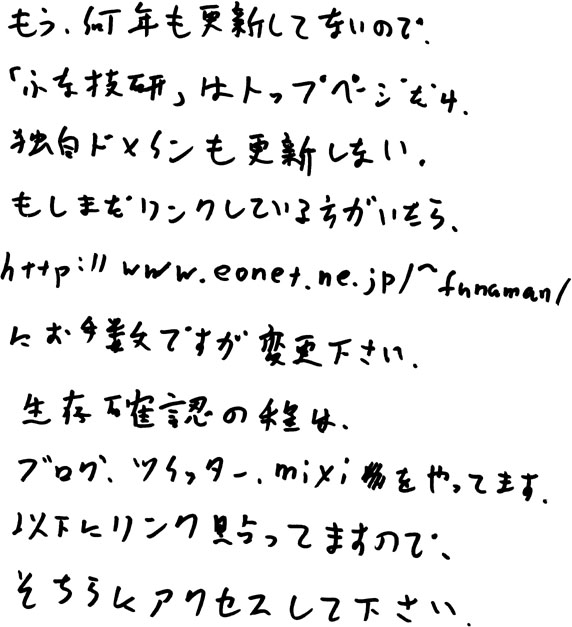 もう、何年も更新してないので、
「ふな技研」はトップページだけ、
独自ドメインも更新しない。
もしまだリンクしている方がいたら、
http://www.eonet.ne.jp/~funaman/
にお手数ですが変更下さい。
生存確認の程は、
ブログ、ツイッター、mixi等をやってます。
以下にリンク貼ってますので、
そちらにアクセスして下さい。